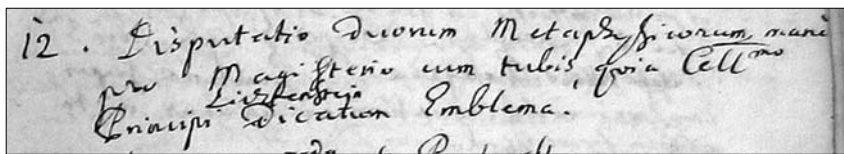 12. Disputatio duorum Metaphysicorum, mane
pro Magisterio cum tubis, quia Cell^mo
Liechtenstein
Principi Dicatum Emblema.